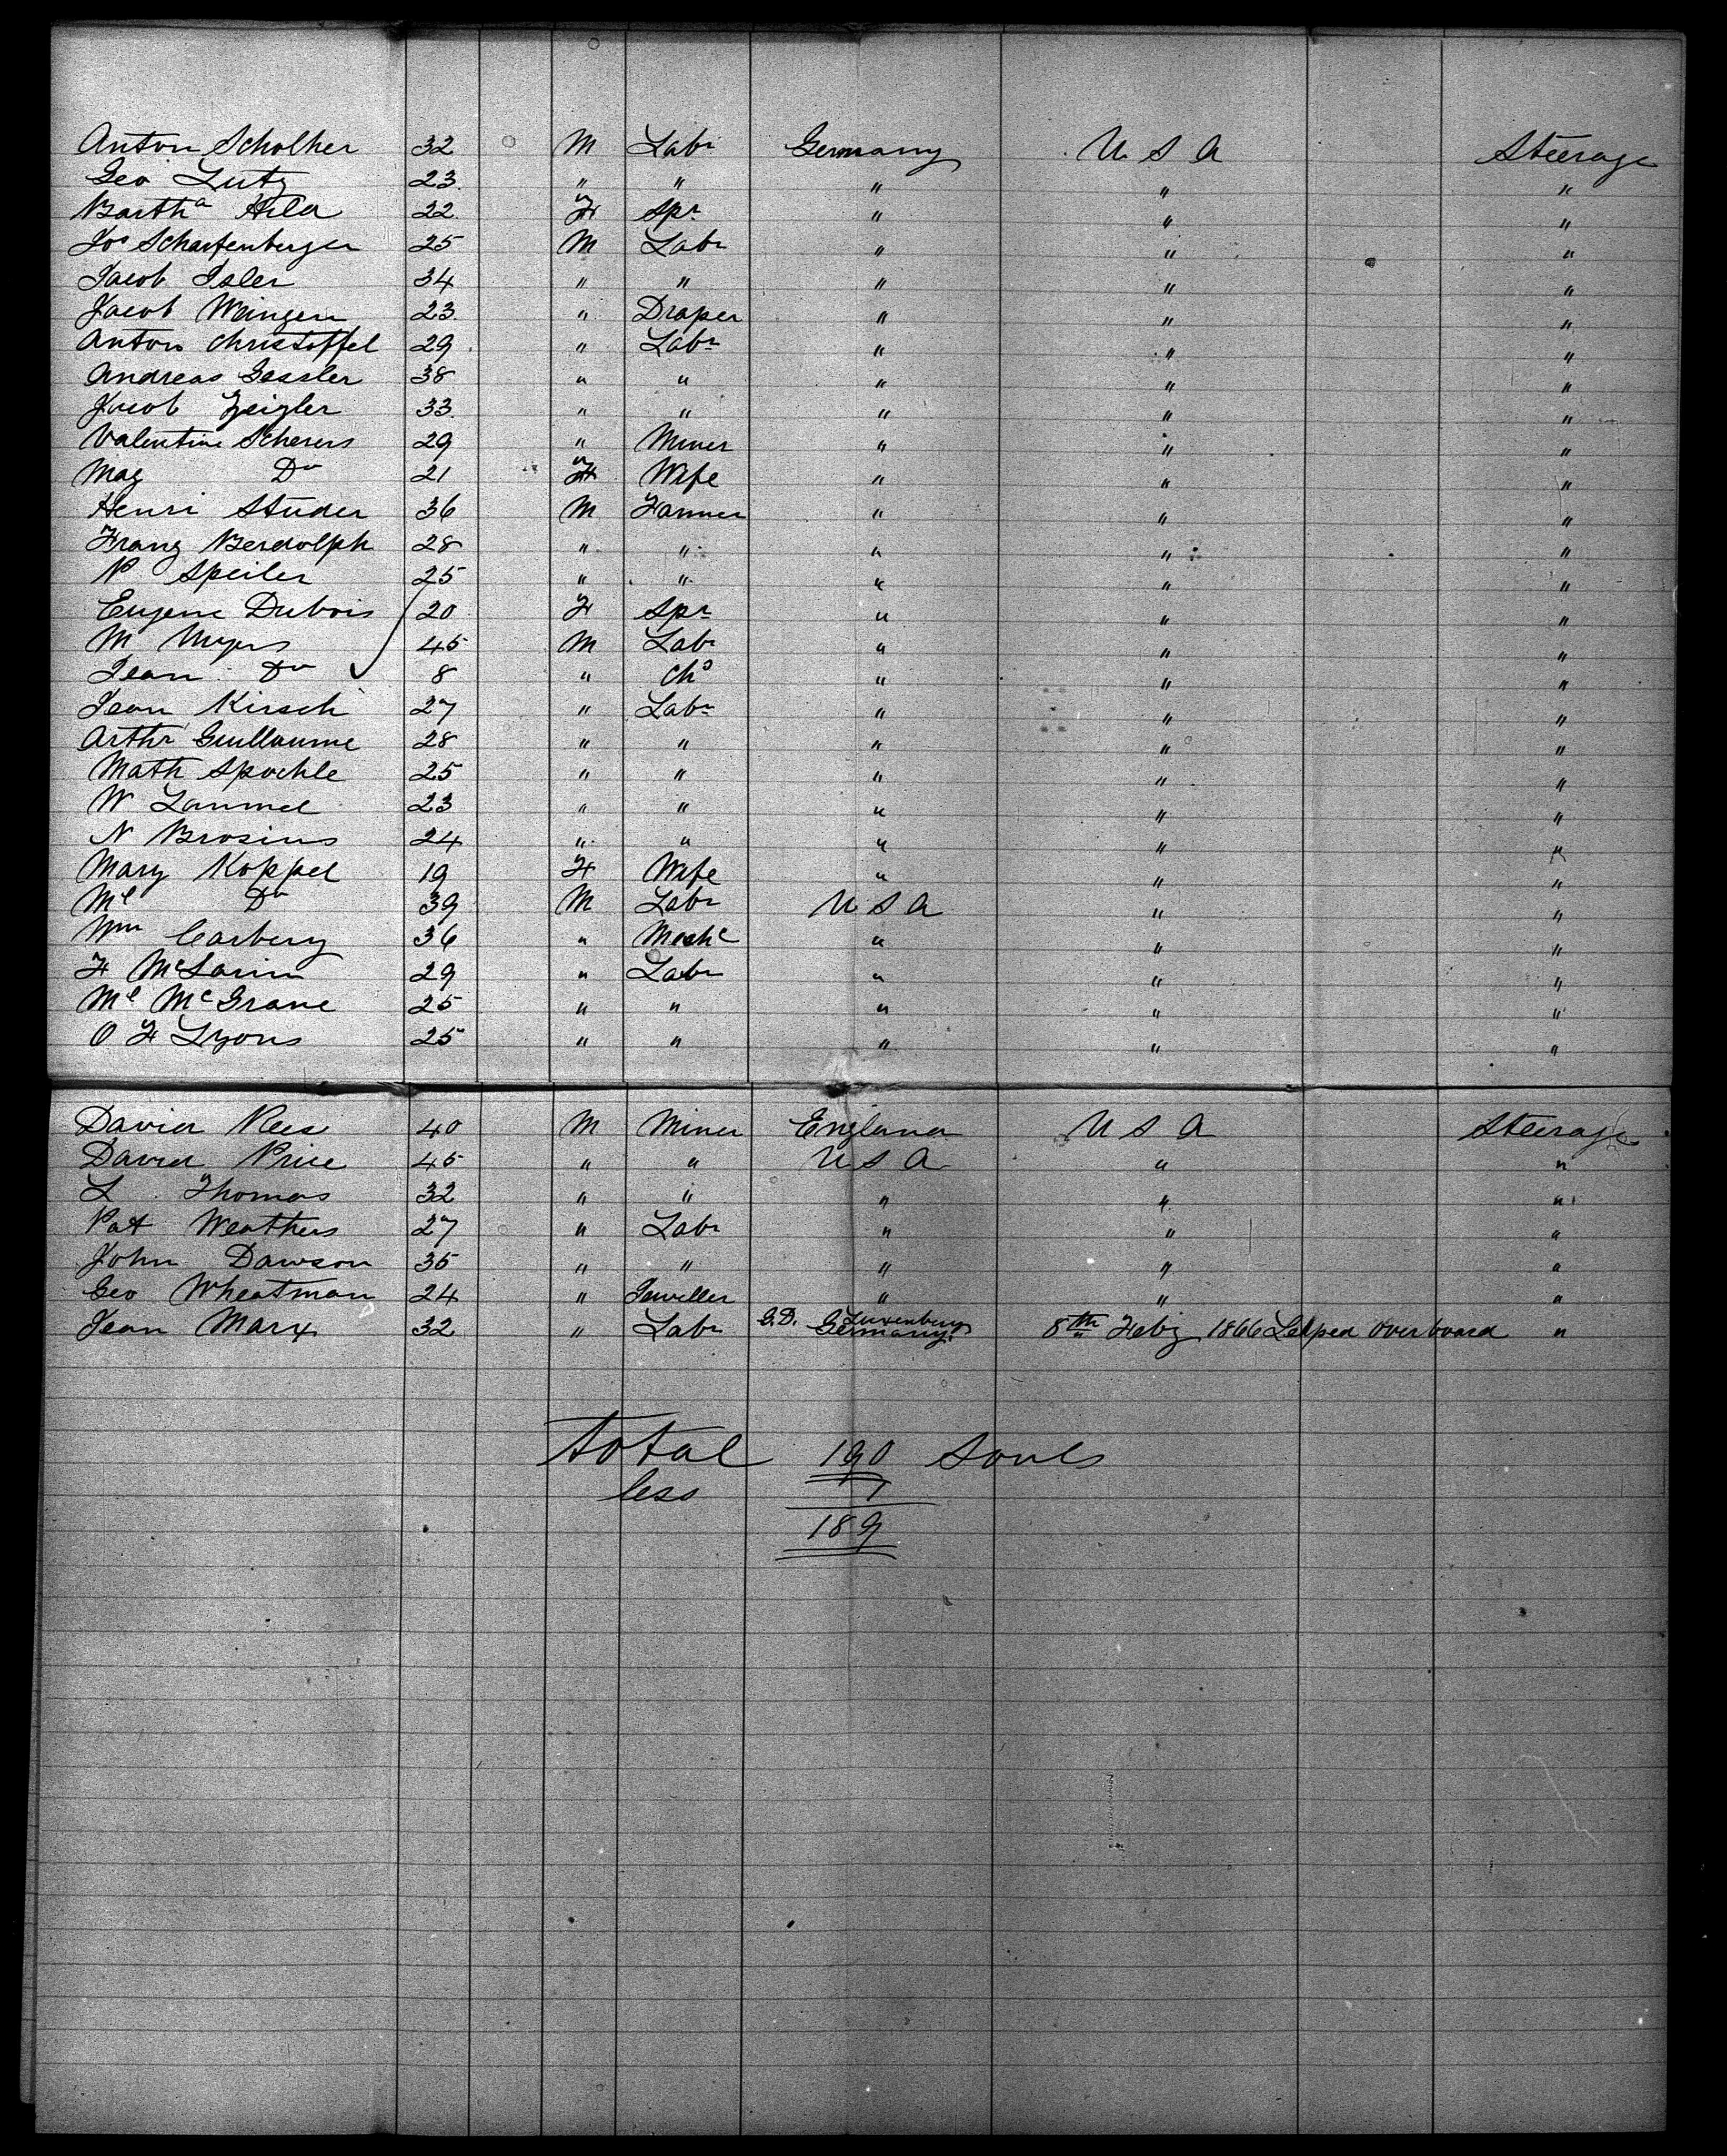 Anton Scholher 32 M Labr Germany U S A Steerage
Geo Lutz 23 " " " " "
Barthª Hild 22 F Spr " " "
Jos Scharfenberger 25 M Labr " " "
Jacob Isler 34 " " " " "
Jacob Weingen 23 " Draper " " "
Anton Christoffel 29 " Labr " " "
Andreas Gessler 38 " " " " "
Jacob Zeigler 33 " " " " "
Valentine Scherers 29 " Miner " " "
Mag Do 21 F Wife " " "
Henri Studer 36 M Farmer " " "
Franz Berdolph 28 " " " " "
P. Speiler 25 " " " " "
Eugene Dubois 20 F Spr " " "
M Myers 45 M Labr " " "
Jean Do 8 " Chd " " "
Jean Kirsch 27 " Labr " " "
Arthr Guillaume 28 " " " " "
Math Spochle 25 " " " " "
W Lammel 23 " " " " "
N Brosius 24 " " " " "
Mary Koppel 19 F Wife " " "
Ml Do 39 M Labr U S A " "
Wm Carbery 36 " Mechc " " "
F McLarin 29 " Labr " " "
Ml McGrane 25 " " " " "
O F Lyons 25 " " " " "
David Rees 40 M Miner England U S A Steerage
David Price 45 " " U S A " "
L Thomas 32 " " " " "
Pat Weathers 27 " Labr " " "
John Dawson 35 " " " " "
Geo Wheatman 24 " Jeweller " " "
Jean Marx 32 " Labr G.D. Luxenburg Germany 8th Feby 1866 Leaped overboard "
Total 190 Souls
less 1
189